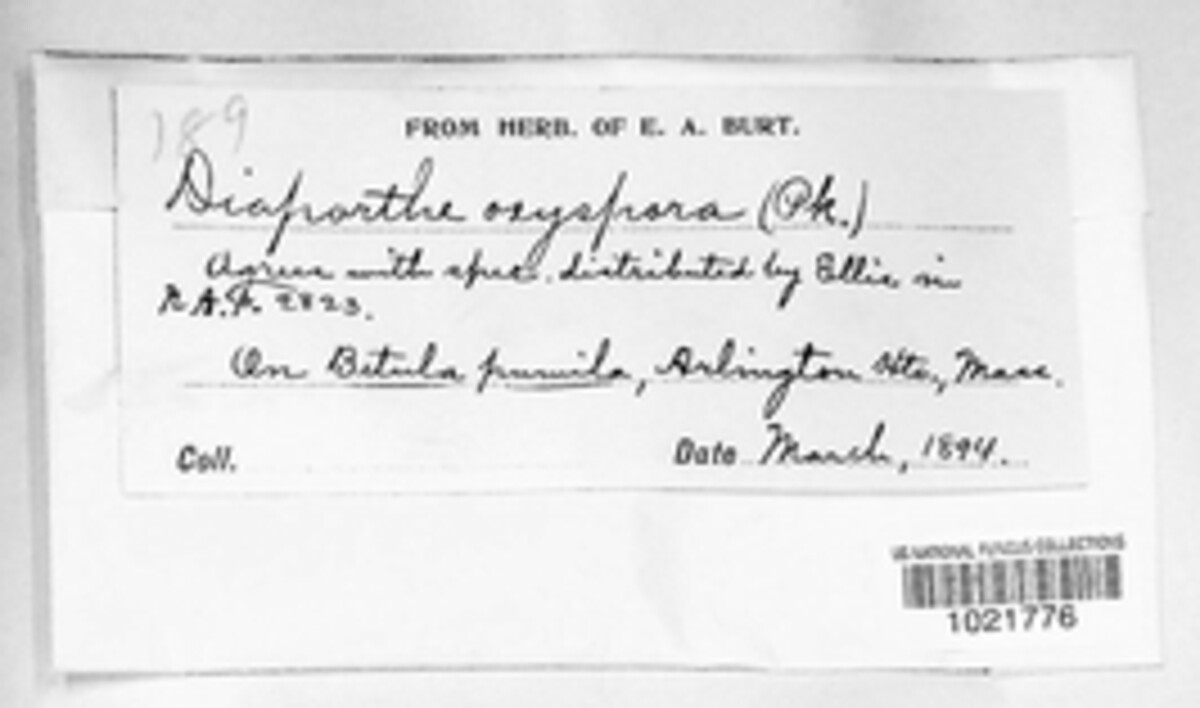 189
FROM HERB. OF E. A. BURT.
Diaporthe oxyspora (Pk.)
Agrees with spec. distributed by Ellis in
N.A.F. 2823.
On Betula pumila, Arlington Hts., Mass.
Coll.
Date March, 1894.
US NATIONAL FUNGUS COLLECTIONS
1021776